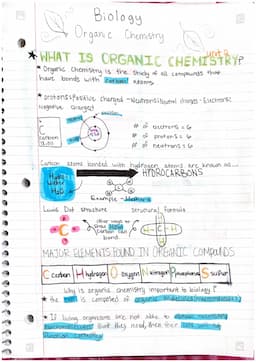 Biology
Organic Chemistry
Unit 2
* WHAT IS ORGANIC CHEMISTRY?
* Organic Chemistry is the study of all compounds that
have bonds with carbon atoms.
* Protons: Positive charged - Neutrons: Neutral charges - Electrons:
Negative charges
6
C
Carbon
12.011
# of electrons = 6
# of protons = 6
# of neutrons = 6
Carbon atoms bonded with hydrogen atoms are known as
HYDROCARBONS
Water
H2O
Example - Methane
Lewis Dot structure
other ways to show how carbon can bond
Structural Formula
MAJOR ELEMENTS FOUND IN ORGANIC COMPOUNDS
Carbon Hydrogen Oxygen Nitrogen Phosphorus Sulfur
Why is organic chemistry important to biology?
* the is composed of organic
* If living organisms are not able to
that they need, then their